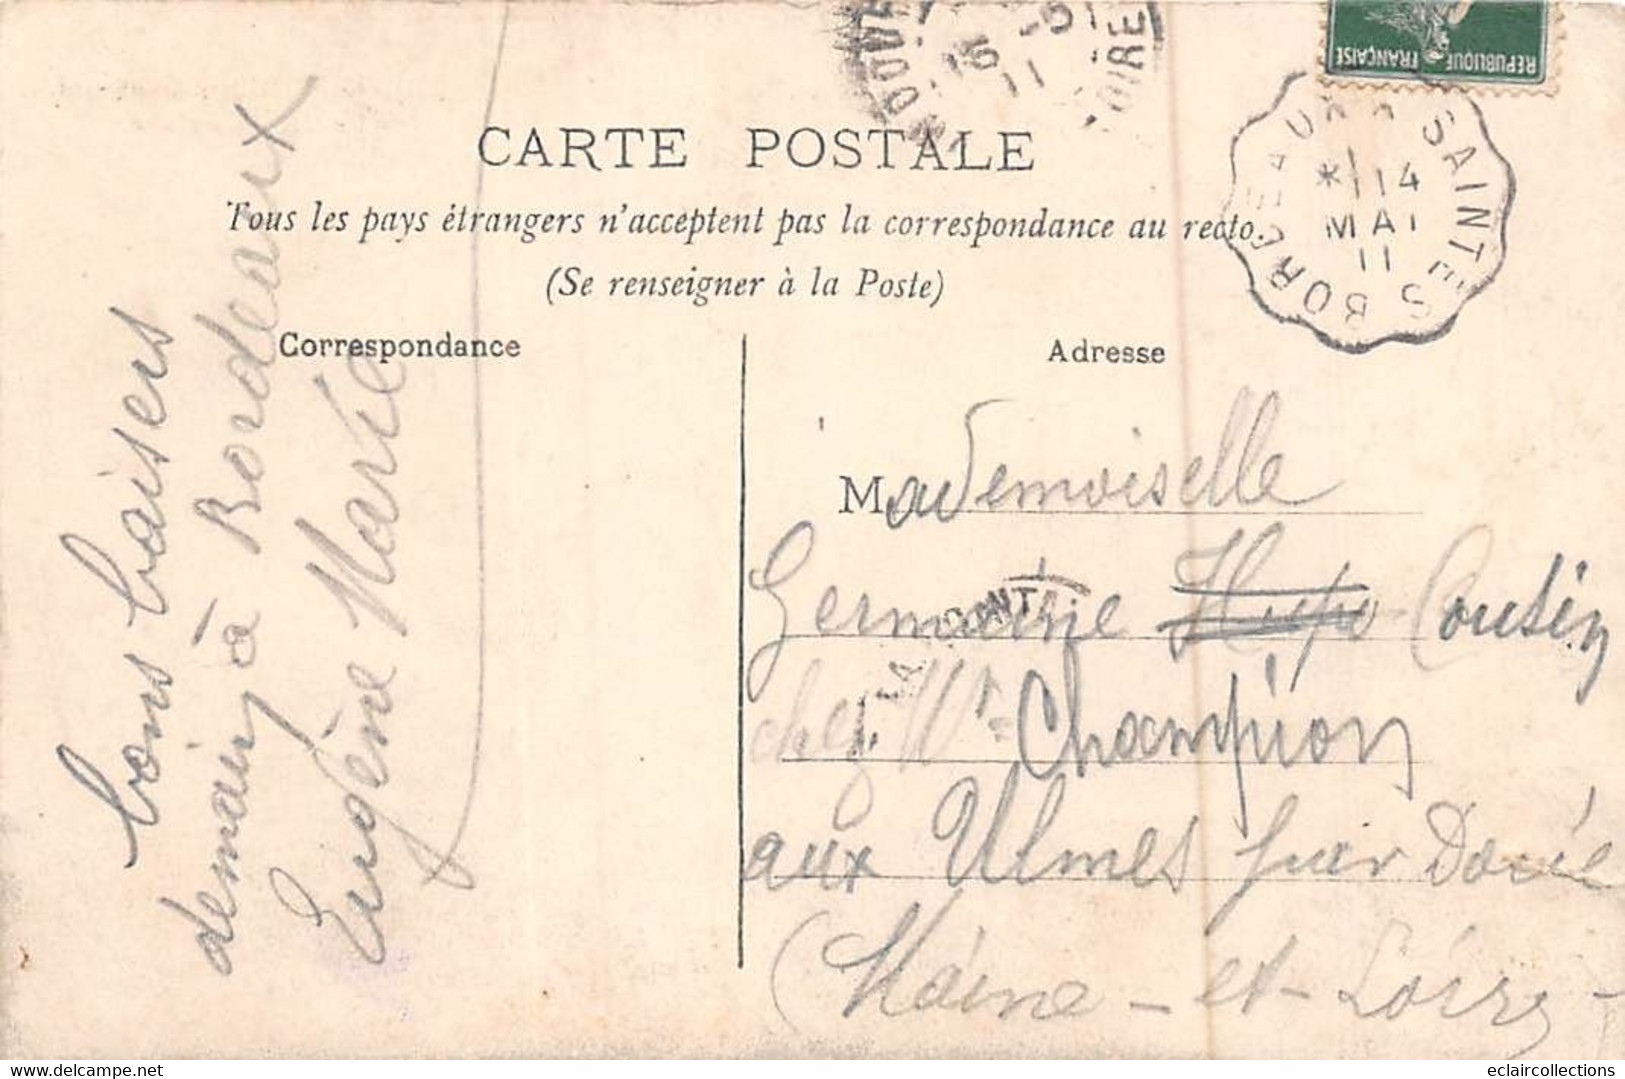 RÉPUBLIQUE FRANÇAISE
15 -5
11
OIRE
BORDEAUX A SAINTES
* 14
MAI
11
CARTE POSTALE
Tous les pays étrangers n'acceptent pas la correspondance au recto.
(Se renseigner à la Poste)
Correspondance
Adresse
bons baisers
demain à Bordeaux
Eugène Marie
Mademoiselle
Germaine Cousin
chez Mr Champion
aux Ulmes par Doué
(Maine-et-Loire)
eclaircollections